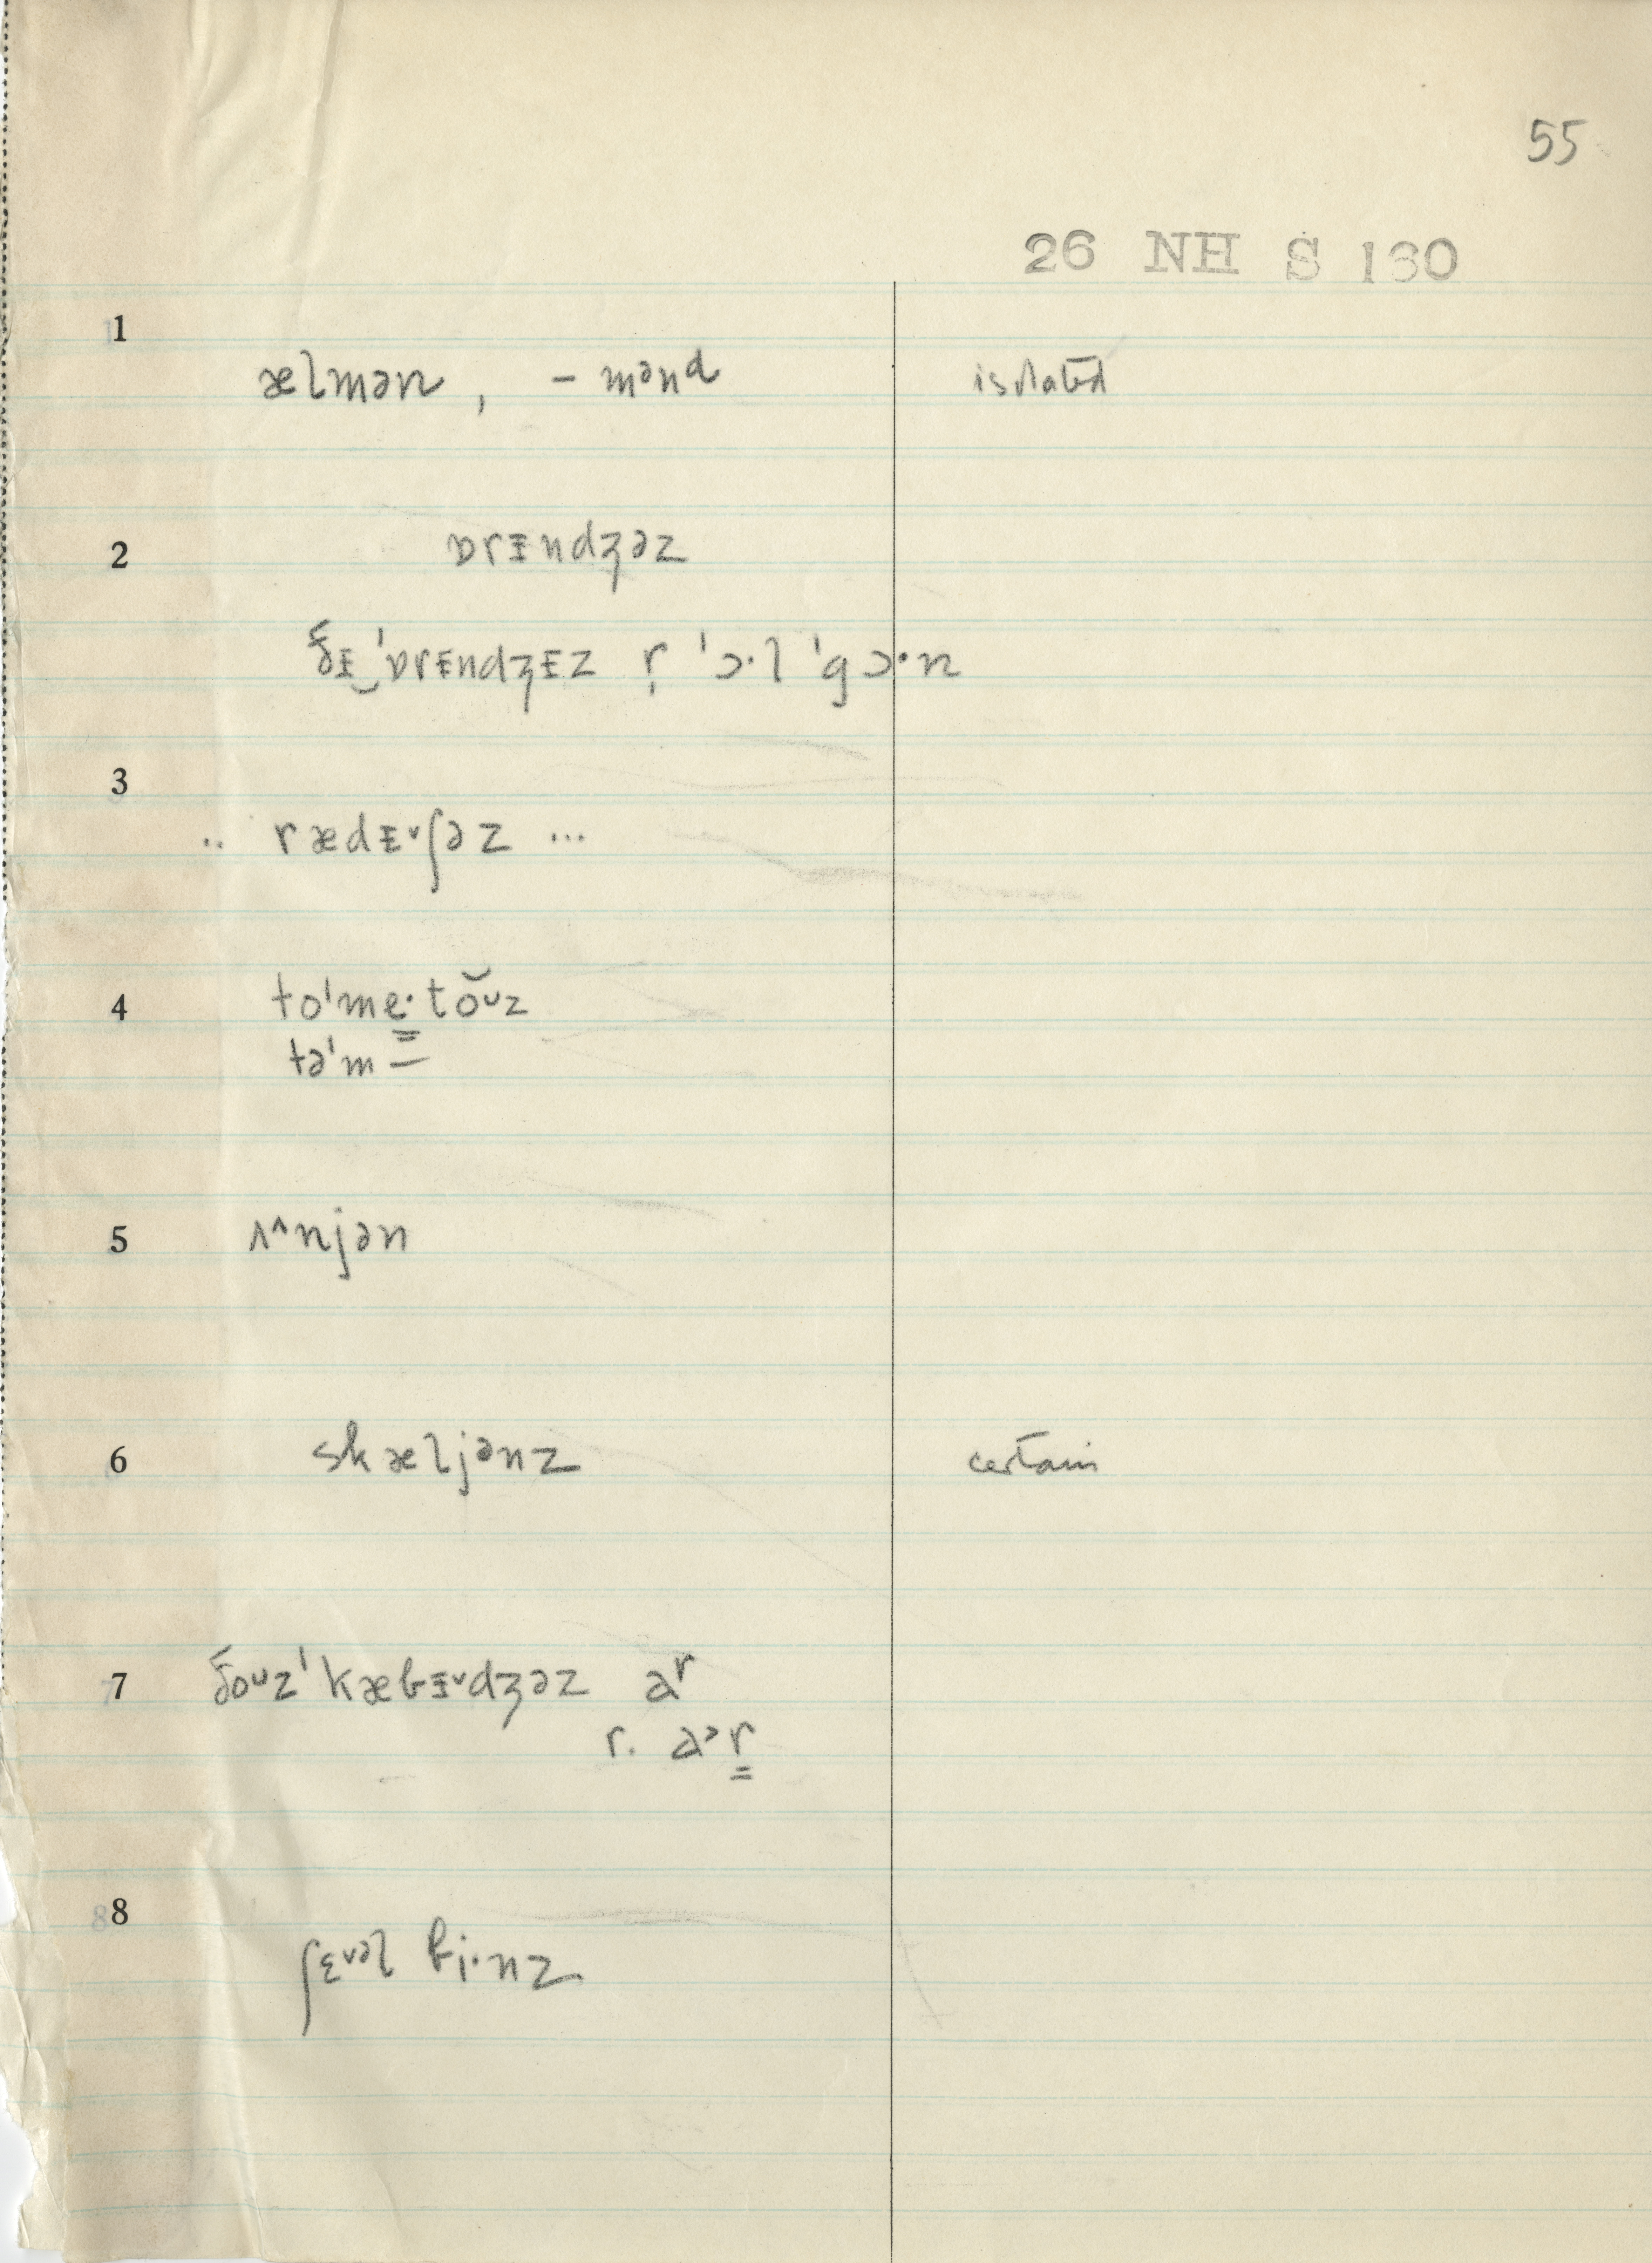 55
26 NH S 130
1
ælmən, – mənᵈ isolated
2
ɒrɪndʒəz
ðɪ‿ˈɒrɪndʒɪz r̩ ˈɔ·l ˈgɔ·n
3
.. rædɪ˅ʃəz ...
4
toˈme̳·tŏᴜz
təˈm –
5
ʌ^njən
6
skæljənz certain
7
ðoᴜzˈkæbɪ˅dʒəz aʳ
r. a˃r̳
8
ʃɛ˅əl bi·nz